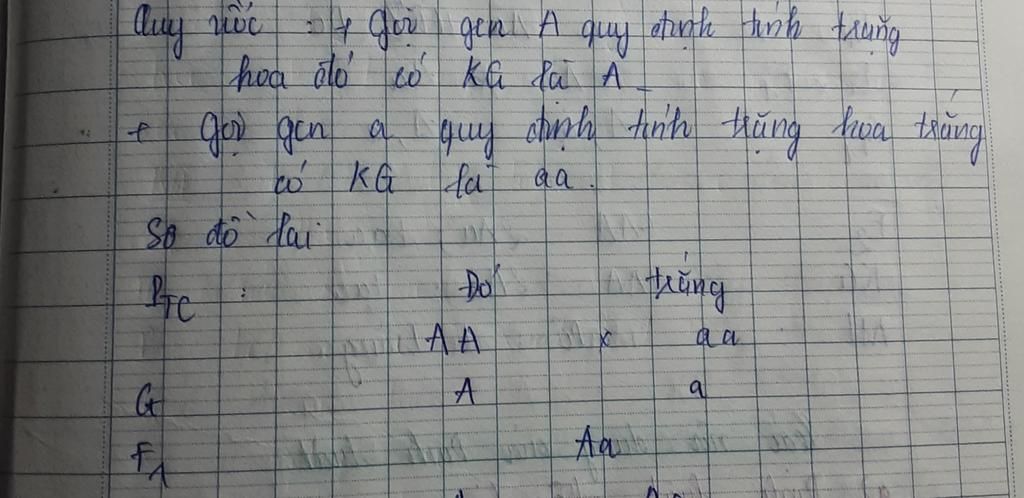 Quy ước : + Gọi gen A quy định tính trạng
hoa đỏ có KG là A_
+ Gọi gen a quy định tính trạng hoa trắng
có KG là aa.
Sơ đồ lai
PTC : Đỏ trắng
AA x aa
G A a
F1 Aa